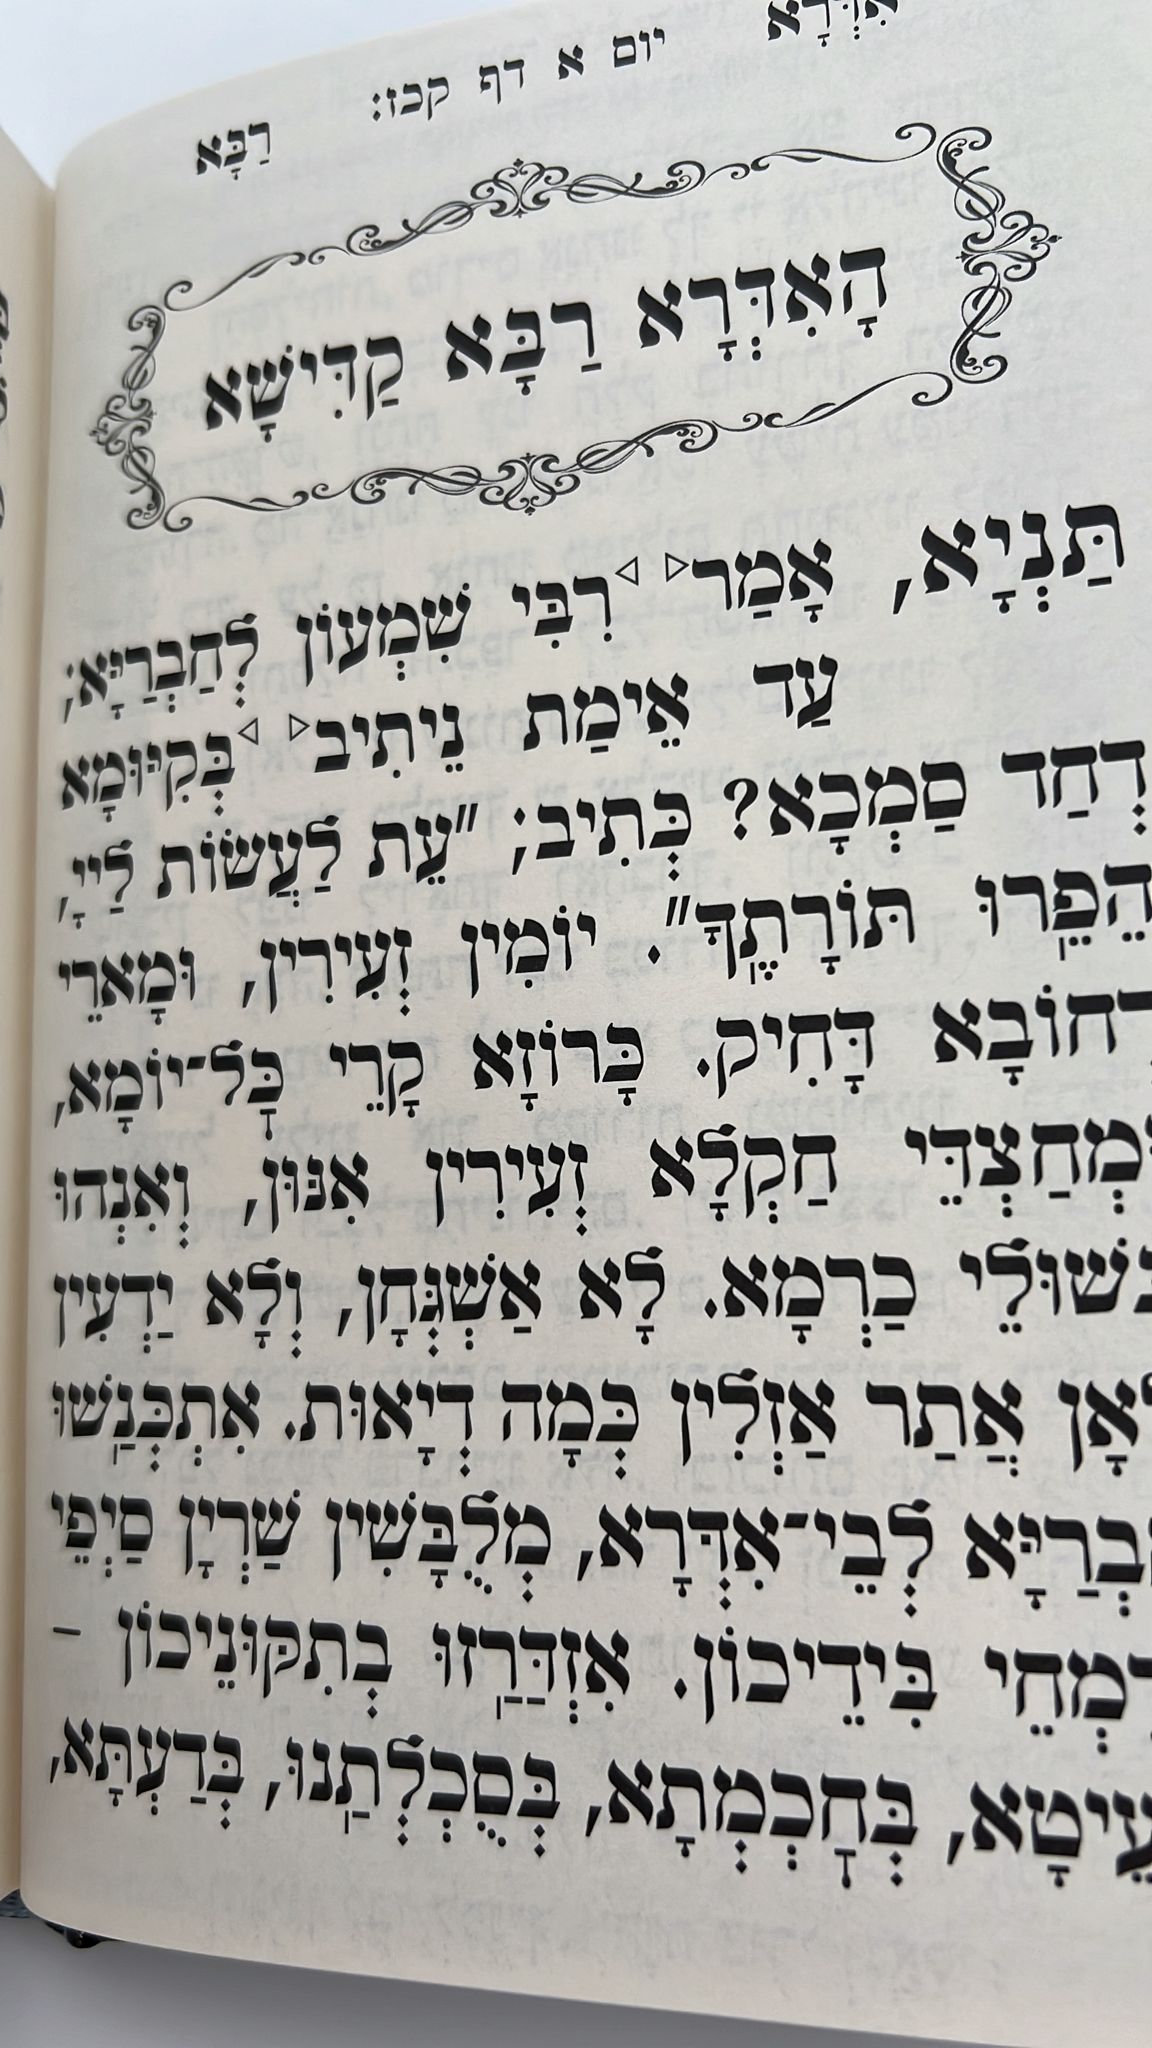 אִדְּרָא יוֹם א דף קכז: רַבָּא
הָאִדְּרָא רַבָּא קַדִּישָׁא
תַּנְיָא, אָמַר רִבִּי שִׁמְעוֹן לְחַבְרַיָּא;
עַד אֵימַת נֵיתִיב בְּקִיּוּמָא
דְחַד סַמְכָא? כְּתִיב; "עֵת לַעֲשׂוֹת לַייָ,
הֵפֵרוּ תּוֹרָתֶךָ". יוֹמִין זְעִירִין, וּמָארֵי
דְחוֹבָא דָּחִיק. כָּרוֹזָא קָרֵי כָּל־יוֹמָא,
וּמְחַצְדֵּי חַקְלָא זְעִירִין אִנּוּן, וְאִנְהוּ
בְּשׁוּלֵי כַרְמָא. לָא אַשְׁגְּחָן, וְלָא יַדְעִין
לְאָן אֲתַר אַזְלִין כְּמָה דְיָאוּת. אִתְכְּנַשׁוּ
חַבְרַיָּא לְבֵי־אִדְּרָא, מְלֻבָּשִׁין שַׁרְיָן סַיְפֵי
וְרֻמְחֵי בִּידֵיכוֹן. אִזְדָּרְזוּ בְתִקּוּנֵיכוֹן –
בְּעֵיטָא, בְּחָכְמְתָא, בְּסֻכְלְתָנוּ, בְּדַעְתָּא,